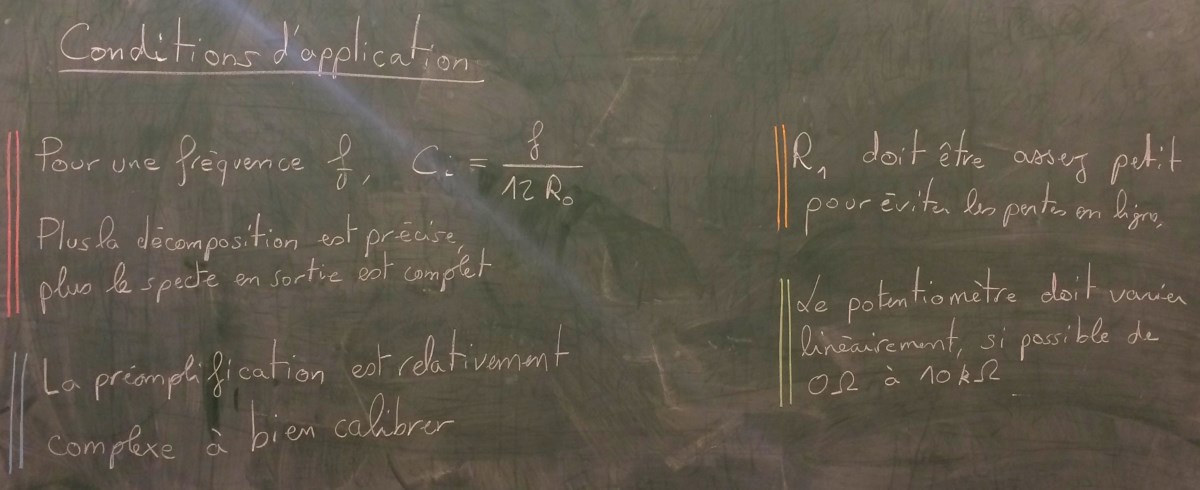 Conditions d'application
Pour une fréquence f, Ci = f / 12 R₀
Plus la décomposition est précise,
plus le specte en sortie est complet
La préamplification est relativement
complexe à bien calibrer
R₁ doit être assez petit
pour éviter les pertes en ligne.
Le potentiomètre doit varier
linéairement, si possible de
0Ω à 10kΩ